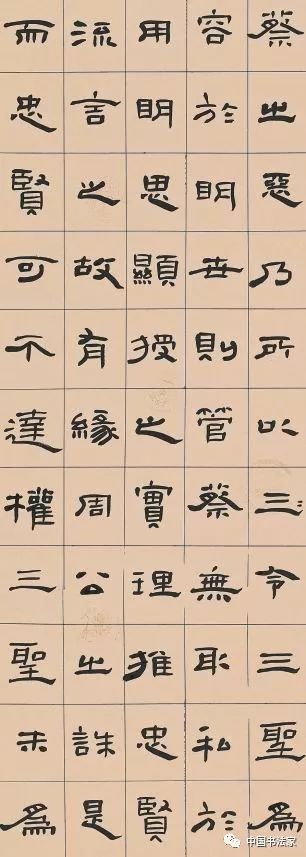 蔡之惡乃所以三令三聖為
容於明世則管蔡無取私於
用明思顯授之實理推忠賢
流言之故有緣周公之誅是
而忠賢可不達權三聖未為
中国书法家